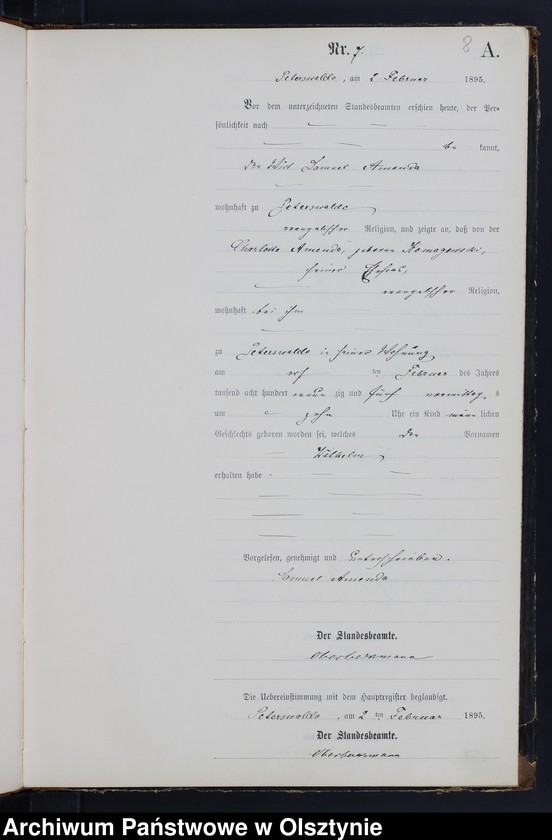 8
Nr. 7.
A.
Peterswalde, am 2 Februar 1895.
Vor dem unterzeichneten Standesbeamten erschien heute, der Per-
sönlichkeit nach
be kannt,
der Wirt Samuel Amenda
wohnhaft zu Peterswalde
evangelischer Religion, und zeigte an, daß von der
Charlotte Amenda, geboren
seiner Ehefrau,
evangelischer Religion,
wohnhaft bei ihm
zu Peterswalde in seiner Wohnung
am ten Februar des Jahres
tausend acht hundert neun zig und fünf vormittag s
um zehn Uhr ein Kind männ lichen
Geschlechts geboren worden sei, welches den Vornamen
Wilhelm
erhalten habe
Vorgelesen, genehmigt und unterschrieben.
Samuel Amenda
Der Standesbeamte.
Die Uebereinstimmung mit dem Hauptregister beglaubigt.
Peterswalde, am 2 ten Februar 1895.
Der Standesbeamte.
Archiwum Państwowe w Olsztynie